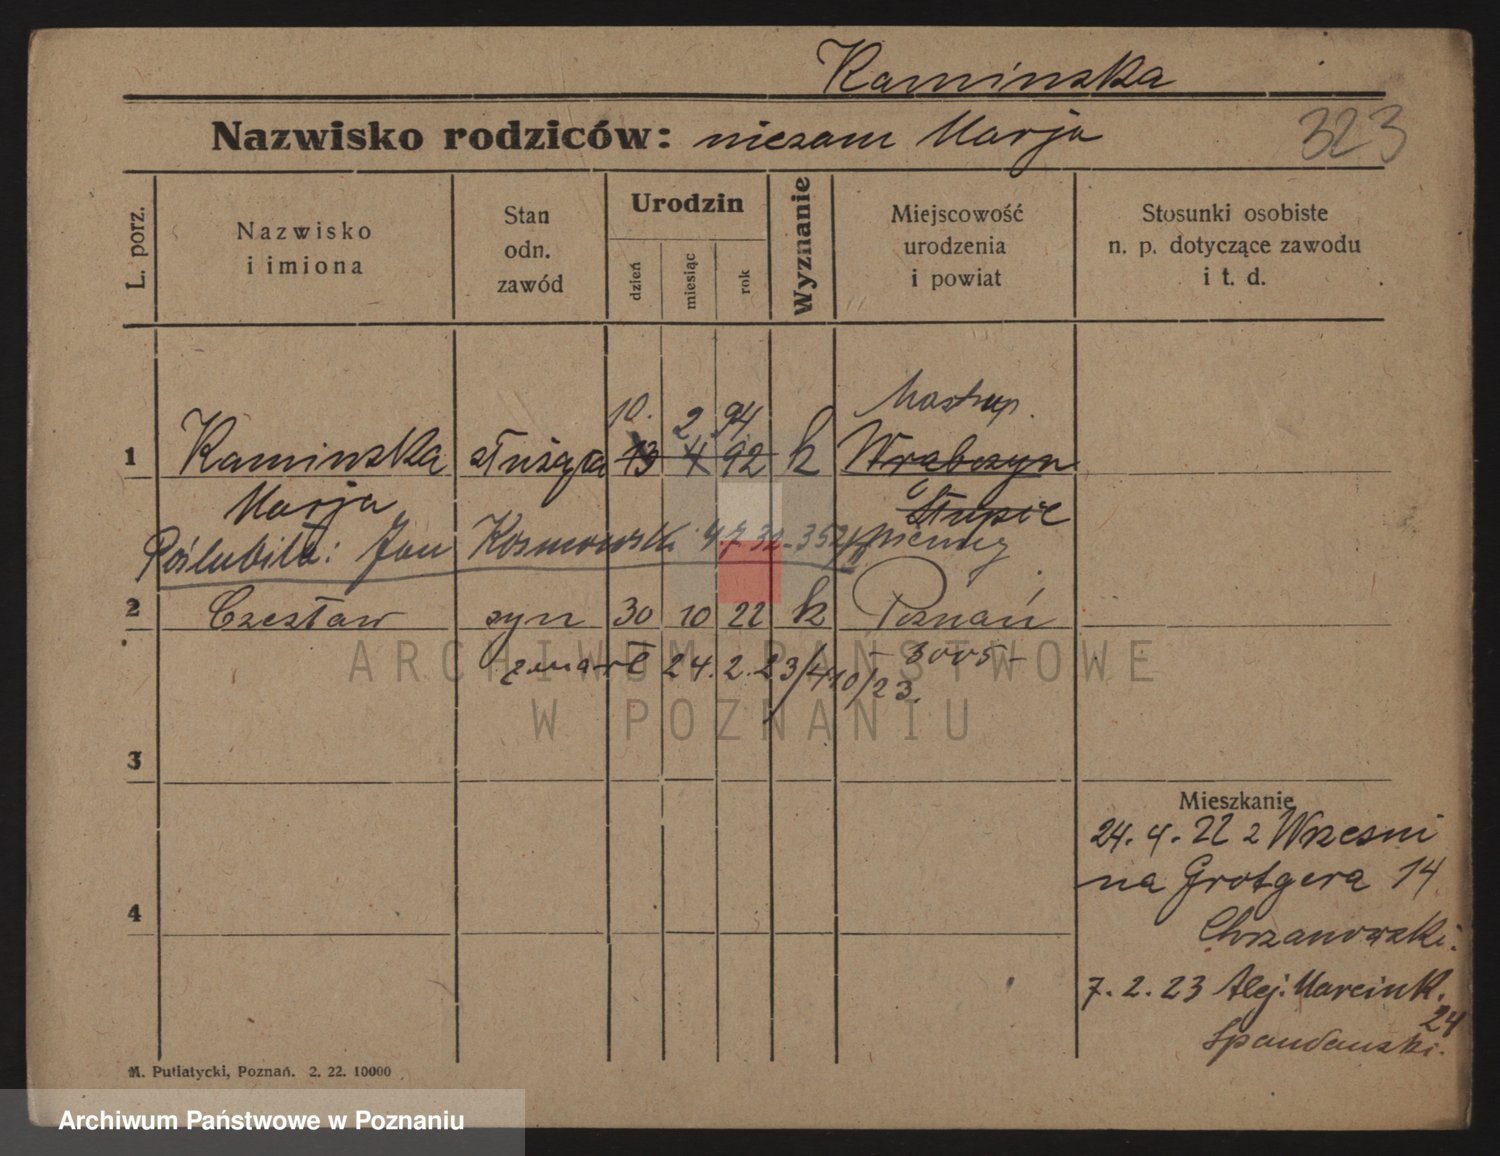 Kaminska
Nazwisko rodziców: niezam Marja
323
L. porz.
Nazwisko i imiona
Stan odn. zawód
Urodzin
dzień miesiąc rok
Wyznanie
Miejscowość urodzenia i powiat
Stosunki osobiste n. p. dotyczące zawodu i t. d.
10. 2 94
1 Kaminska służąca 13 4 92 k Wrabczyn
Marja Słupce
Poślubiła: Jan Kosmowski
2 Czesław syn 30 10 22 k Poznań
zmarł 24. 2. 23/410/23. - 3005 -
ARCHIWUM PAŃSTWOWE
W POZNANIU
3
Mieszkanie
24. 4. 22 z Wrzesni
na Grotgera 14
Chrzanowski.
4
7. 2. 23 Alej. Marcink.
24
Spandauski.
M. Putiatycki, Poznań. 2. 22. 10000
Archiwum Państwowe w Poznaniu